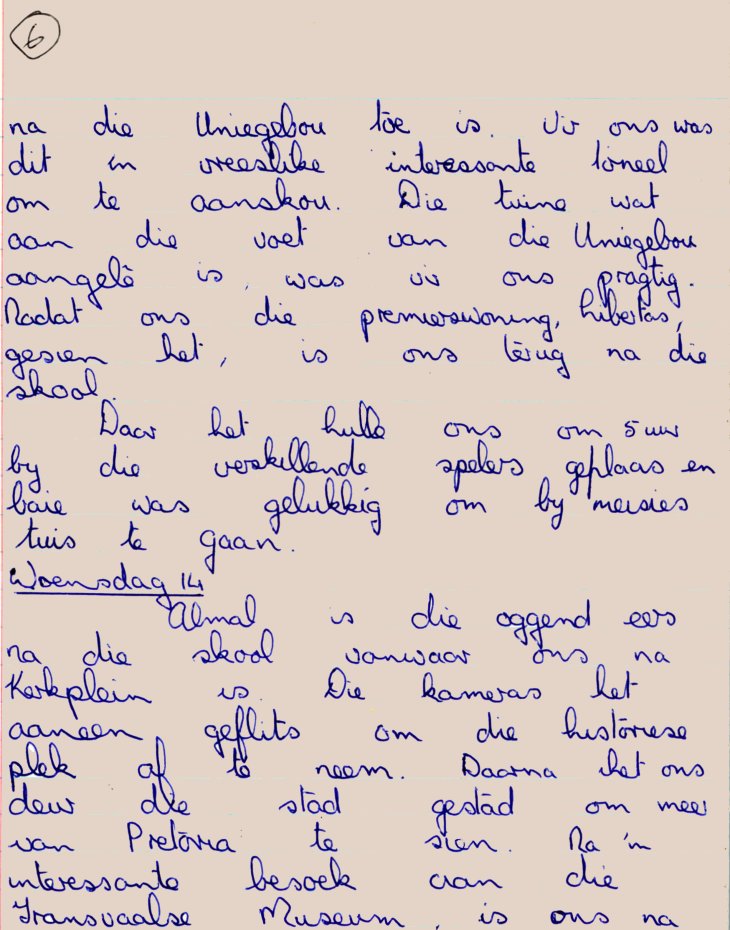 6
na die Uniegebou toe is. Vir ons was
dit 'n vreeslike interessante toneel
om te aanskou. Die tuine wat
aan die voet van die Uniegebou
aangelê is, was vir ons pragtig.
Nadat ons die premierswoning, Libertas,
gesien het, is ons terug na die
skool.
Daar het hulle ons om 5 uur
by die verskillende spelers geplaas en
baie was gelukkig om by meisies
tuis te gaan.
Woensdag 14
Almal is die oggend eers
na die skool vanwaar ons na
Kerkplein is. Die kameras het
aaneen geflits om die historiese
plek af te neem. Daarna het ons
deur die stad gestad om meer
van Pretoria te sien. Na 'n
interessante besoek aan die
Transvaalse Museum, is ons na